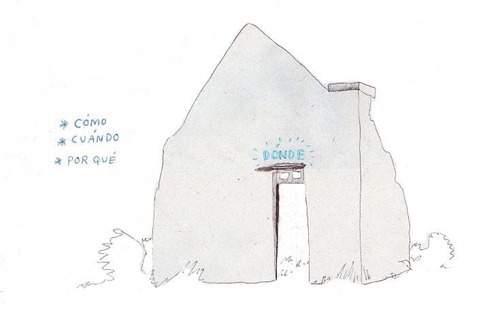 * CÓMO
* CUÁNDO
* POR QUÉ
DÓNDE